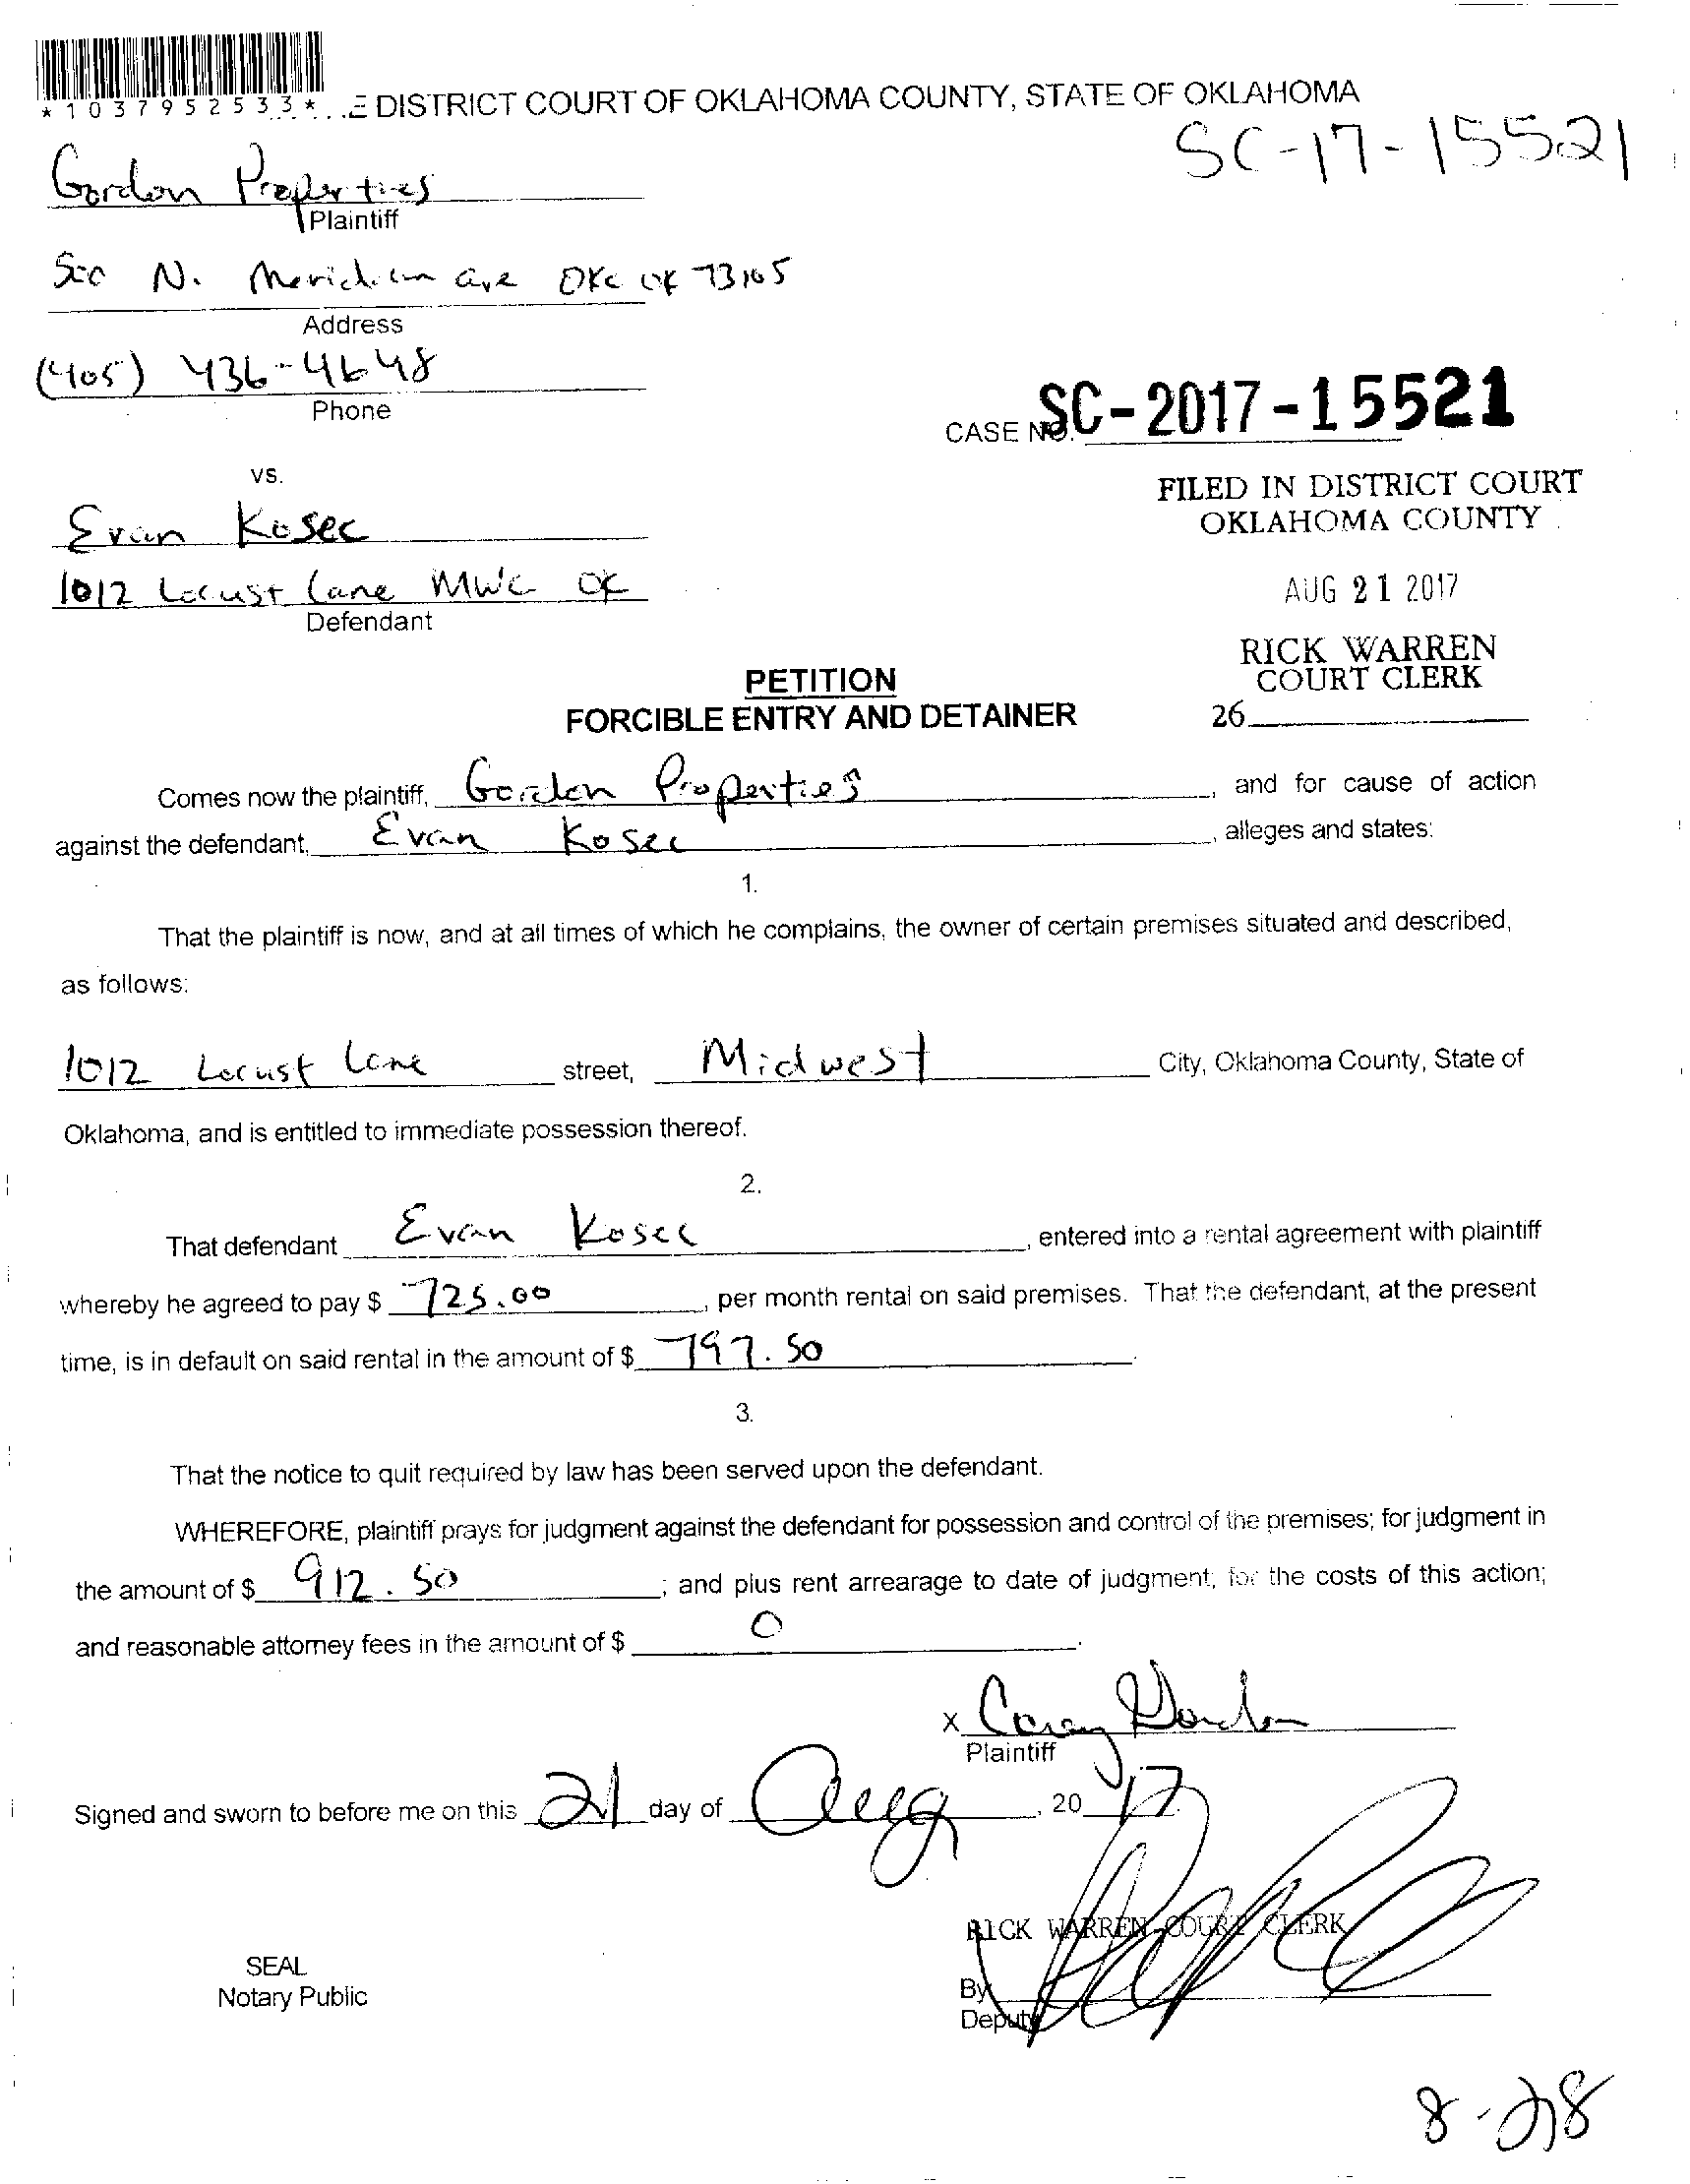 *1037952533*
E DISTRICT COURT OF OKLAHOMA COUNTY, STATE OF OKLAHOMA
SC-17-15521
Gordon Properties
Plaintiff
N. Meridian ave OKC OK 73105
Address
(405) 436-4648
Phone
CASE NO. SC-2017-15521
vs.
FILED IN DISTRICT COURT
OKLAHOMA COUNTY
Evan Kosec
1012 Locust Lane MWC OK
Defendant
AUG 21 2017
RICK WARREN
COURT CLERK
26
PETITION
FORCIBLE ENTRY AND DETAINER
Comes now the plaintiff, Gordon Properties, and for cause of action
against the defendant, Evan Kosec, alleges and states:
1.
That the plaintiff is now, and at all times of which he complains, the owner of certain premises situated and described,
as follows:
1012 Locust Lane street, Midwest City, Oklahoma County, State of
Oklahoma, and is entitled to immediate possession thereof.
2.
That defendant Evan Kosec, entered into a rental agreement with plaintiff
whereby he agreed to pay $ 725.00, per month rental on said premises. That the defendant, at the present
time, is in default on said rental in the amount of $ 797.50.
3.
That the notice to quit required by law has been served upon the defendant.
WHEREFORE, plaintiff prays for judgment against the defendant for possession and control of the premises; for judgment in
the amount of $ 912.50; and plus rent arrearage to date of judgment; for the costs of this action;
and reasonable attorney fees in the amount of $ 0.
x Corey Gordon
Plaintiff
Signed and sworn to before me on this 21 day of Aug, 2017.
RICK WARREN COURT CLERK
SEAL
Notary Public
By
Deputy
8-28